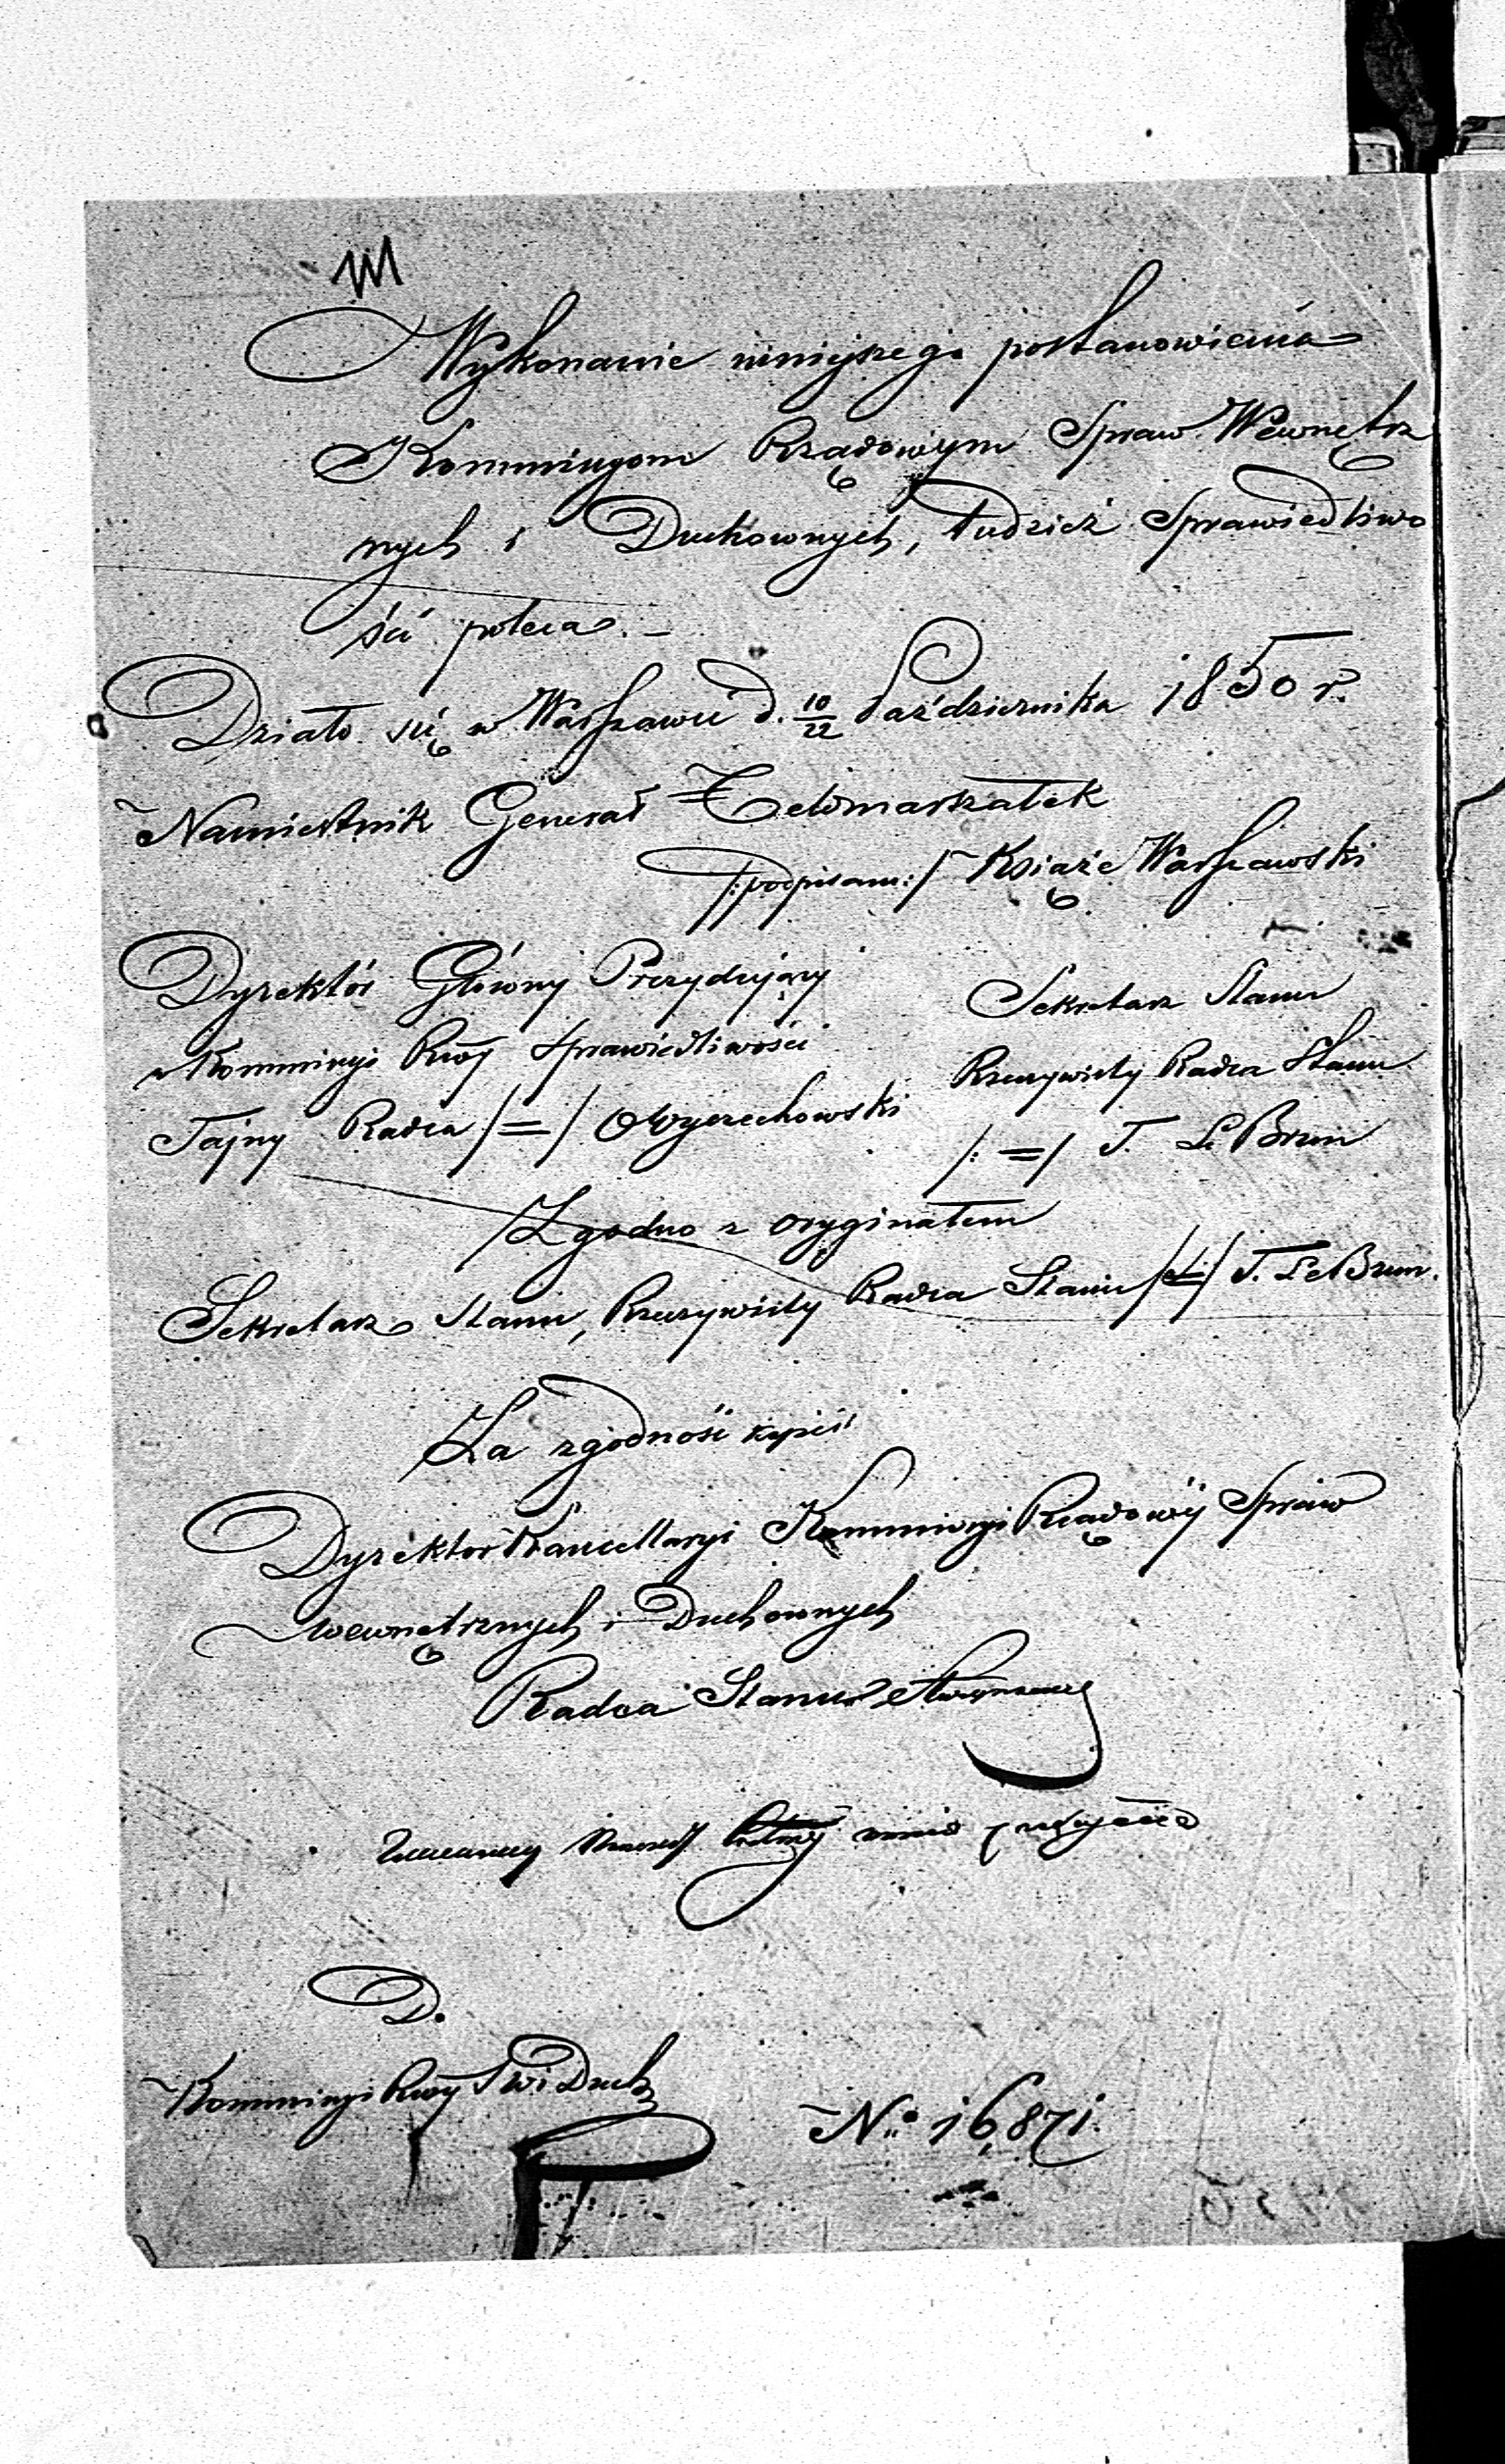 Wykonanie niniejszego postanowienia
Kommissyom Rządowym Spraw Wewnętrz
nych i Duchownych, tudzież Sprawiedliwo
ści poleca. –
Działo się w Warszawie d. 10/22 Października 1850 r.
Namiestnik Generał Feldmarszałek
/:podpisano:/ Książe Warszawski
Dyrektór Główny Prezydujący
w Kommissyi Rwéj Sprawiedliwości
Tajny Radca /=/ Wyczechowski
Sekretarz Stanu
Rzeczywisty Radca Stanu
/:=/ J. Le Brun
Zgodno z oryginałem
Sekretarz Stanu, Rzeczywisty Radca Stanu /=/ J. Le Brun.
Za zgodność kopii
Dyrektor Kancellaryi Kommissyi Rządowéj Spraw
Wewnętrznych i Duchownych
Radca Stanu
D.
Kommissyi Rwéj S W i Duch
No 16,871.